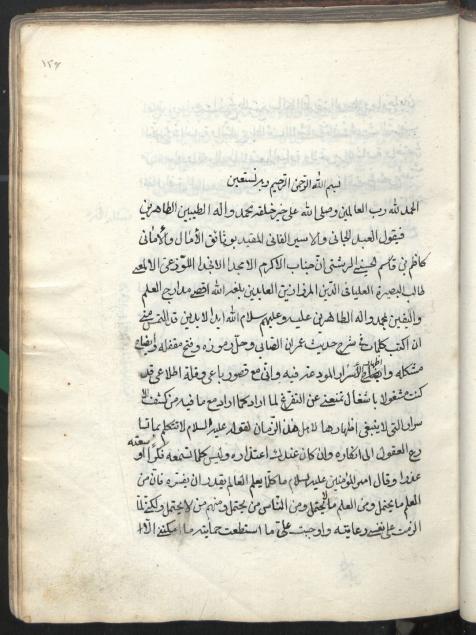 بسم الله الرحمن الرحيم وبه نستعين
الحمد لله رب العالمين وصلى الله على خير خلقه محمد واله الطيبين الطاهرين
فيقول العبد الجانى والاسير الفانى المقيد بوثائق الأمال والأمانى
كاظم بن قاسم الحسينى الرشتى ان جناب الاكرم الامجد الانجد اللوذعى الالمعى
طالب البصيرة العليا فى الدين الميرزا زين العابدين بلغه الله اقصى مدارج العلم
واليقين بمحمد واله الطاهرين عليه وعليهم سلام الله ابد الابدين قد التمس منى
ان اكتب كلمات فى شرح حديث عمران الصابى وحل رموزه وفتح مقفله وايضاح
مشكله واظهار الأسرار المودعة فيه وانى مع قصور باعى وقلة اطلاعى قد
كنت مشغولا باشغال تمنعنى عن التفرغ لما اراد كما اراد مع ما فيه من كشف الا
سرار التى لا ينبغى اظهارها لاجل هذا الزمان لقوله عليه السلام لا تتكلم بما تسا
رع العقول الى انكاره وان كان عندك اعتذاره وليس كلما تسمعه نكرا اوسعته
عذرا وقال امير المؤمنين عليه السلام ما كلما يعلم العالم يقدر ان يفسره فان من
العلم ما يحتمل ومن العلم ما لا يحتمل ومن الناس من يحتمل ومنهم من لا يحتمل ولكنى لما
الزمت على نفسى رعايته واوجبت على ما استطعت حمايته ما امكننى الا